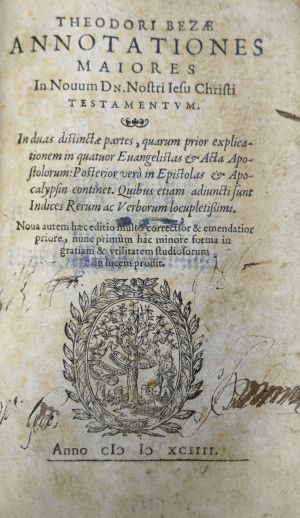 THEODORI BEZÆ
ANNOTATIONES
MAIORES
In Nouum DN. Nostri Iesu Christi
TESTAMENTVM.
In duas distinctæ partes, quarum prior explica-
tionem in quatuor Euangelistas & Acta Apo-
stolorum: Posterior verò in Epistolas & Apo-
calypsin continet. Quibus etiam adiuncti sunt
Indices Rerum ac Verborum locupletissimi.
Noua autem hæc editio multo correctior & emendatior
priore, nunc primùm hac minore forma in
gratiam & vtilitatem studiosorum
in lucem prodit.
Anno cIↄ Iↄ XCIIII.